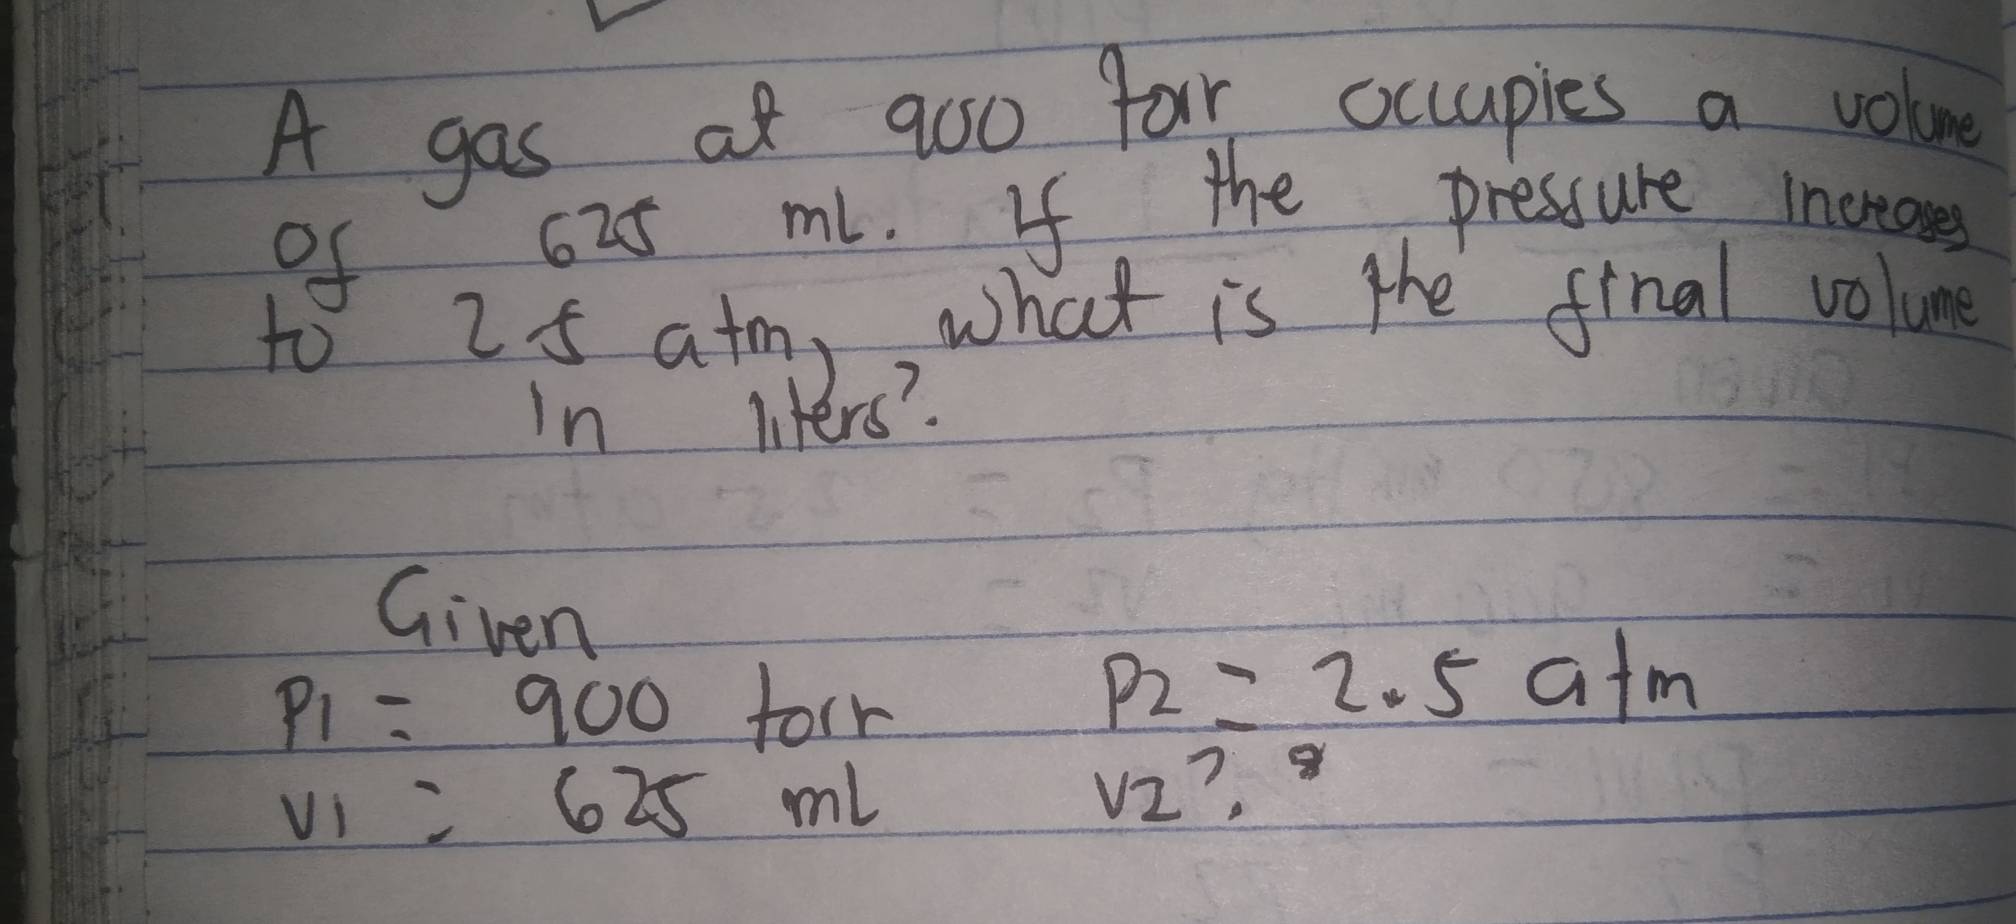 A gas at 900 torr occupies a volume
of 625 mL. If the pressure increases
to 2 5 atm, what is the final volume
in liters?.
Given
P1 = 900 torr P2 = 2.5 atm
V1 = 625 mL V2?.